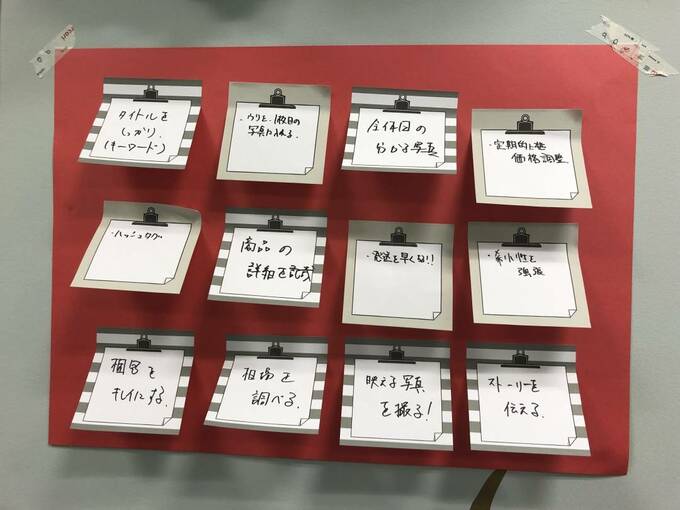 タイトルを
しっかり.
(キーワード)
・ウリを1枚目の
写真に入れる.
全体図の
分かる写真
・定期的に
価格調整
・ハッシュタグ
商品の
詳細を記載
・発送を早くする!!
・希少性を
強調
梱包を
キレイにする.
相場を
調べる.
映える写真
を撮る!
ストーリーを
伝える.